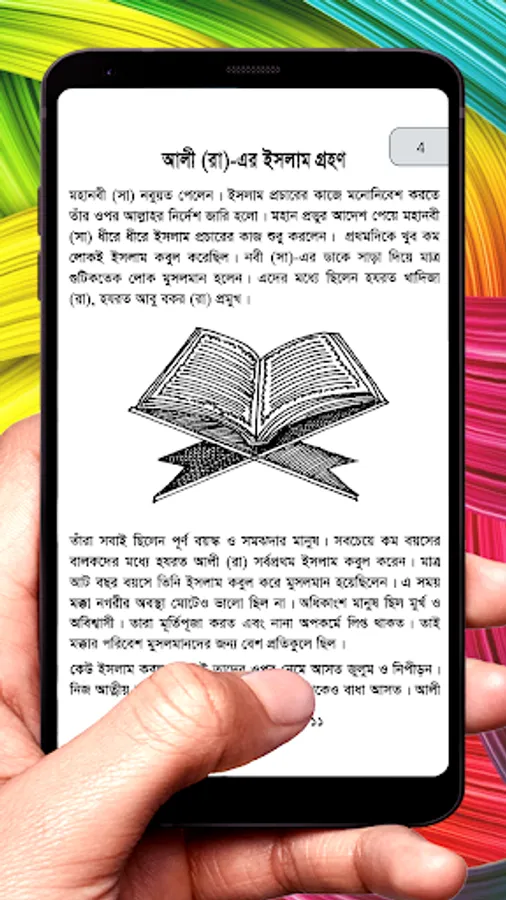 4
আলী (রা)-এর ইসলাম গ্রহণ
মহানবী (সা) নবুয়ত পেলেন। ইসলাম প্রচারের কাজে মনোনিবেশ করতে
তাঁর ওপর আল্লাহর নির্দেশ জারি হলো। মহান প্রভুর আদেশ পেয়ে মহানবী
(সা) ধীরে ধীরে ইসলাম প্রচারের কাজ শুরু করলেন। প্রথমদিকে খুব কম
লোকই ইসলাম কবুল করেছিল। নবী (সা)-এর ডাকে সাড়া দিয়ে মাত্র
গুটিকতেক লোক মুসলমান হলেন। এদের মধ্যে ছিলেন হযরত খাদিজা
(রা), হযরত আবু বকর (রা) প্রমুখ।
তাঁরা সবাই ছিলেন পূর্ণ বয়স্ক ও সমঝদার মানুষ। সবচেয়ে কম বয়সের
বালকদের মধ্যে হযরত আলী (রা) সর্বপ্রথম ইসলাম কবুল করেন। মাত্র
আট বছর বয়সে তিনি ইসলাম কবুল করে মুসলমান হয়েছিলেন। এ সময়
মক্কা নগরীর অবস্থা মোটেও ভালো ছিল না। অধিকাংশ মানুষ ছিল মূর্খ ও
অবিশ্বাসী। তারা মূর্তিপূজা করত এবং নানা অপকর্মে লিপ্ত থাকত। তাই
মক্কার পরিবেশ মুসলমানদের জন্য বেশ প্রতিকূলে ছিল।
কেউ ইসলাম তাদের ওপর নেমে আসত জুলুম ও নিপীড়ন।
নিজ আত্মীয় বাধা আসত। আলী
১১